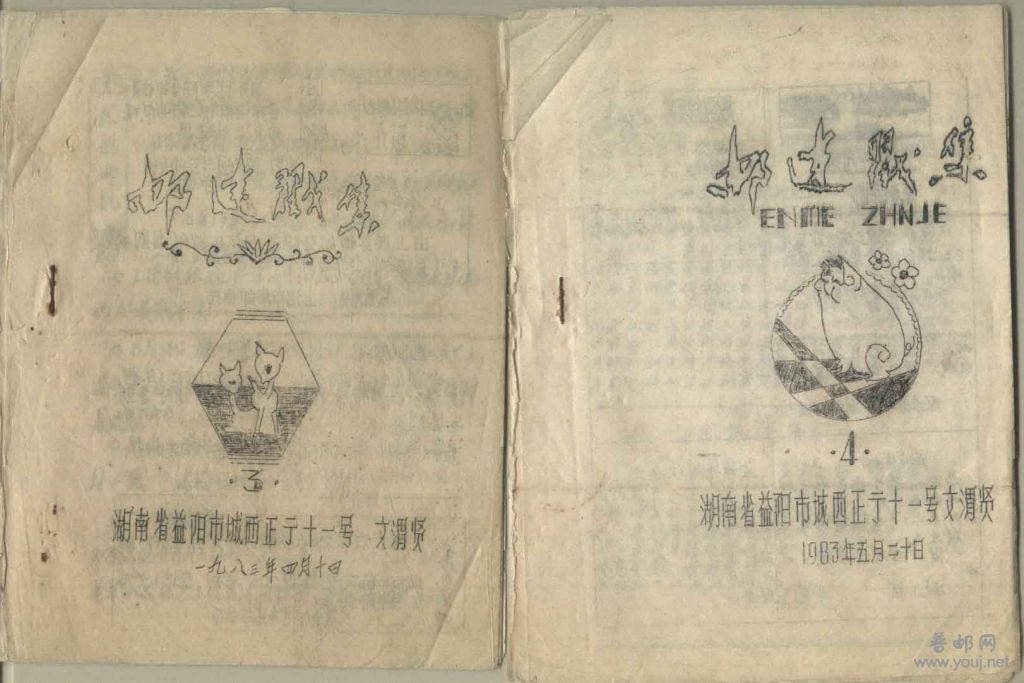 ·3·
湖南省益阳市城西正亍十一号 文渭贤
一九八三年四月十日
·4·
湖南省益阳市城西正亍十一号文渭贤
1983年五月二十日
www.youj.net